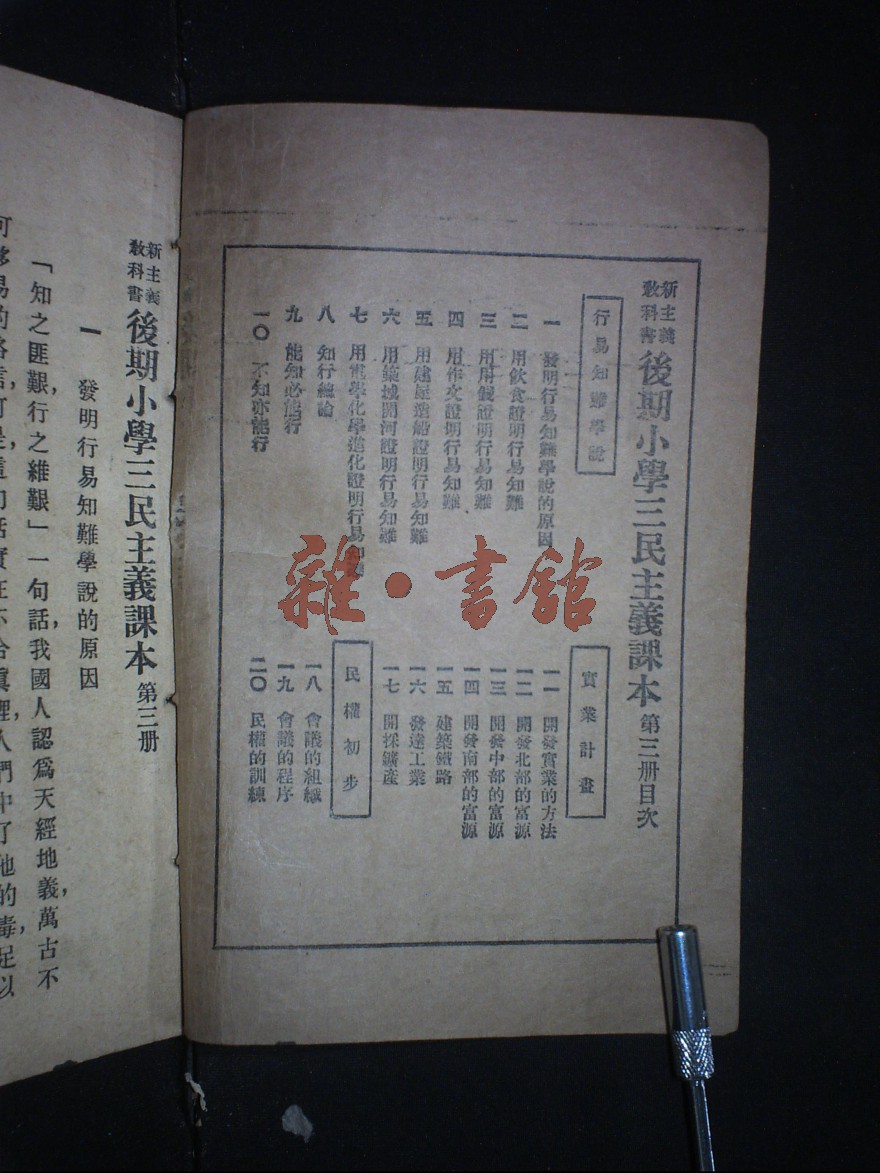 新主義教科書 後期小學三民主義課本 第三册目次
行易知難學說
一 發明行易知難學說的原因
二 用飲食證明行易知難
三 用用錢證明行易知難
四 用作文證明行易知難
五 用建屋造船證明行易知難
六 用築城開河證明行易知難
七 用電學化學進化證明行易知難
八 知行總論
九 能知必能行
一〇 不知亦能行
實業計畫
一一 開發實業的方法
一二 開發北部的富源
一三 開發中部的富源
一四 開發南部的富源
一五 建築鐵路
一六 發達工業
一七 開採鑛產
民權初步
一八 會議的組織
一九 會議的程序
二〇 民權的訓練
雜·書館
新主義教科書 後期小學三民主義課本 第三册
一 發明行易知難學說的原因
「知之匪艱,行之維艱」一句話,我國人認爲天經地義,萬古不
可移易的格言,可是這句話實在不合眞理,人們中了他的毒,足以